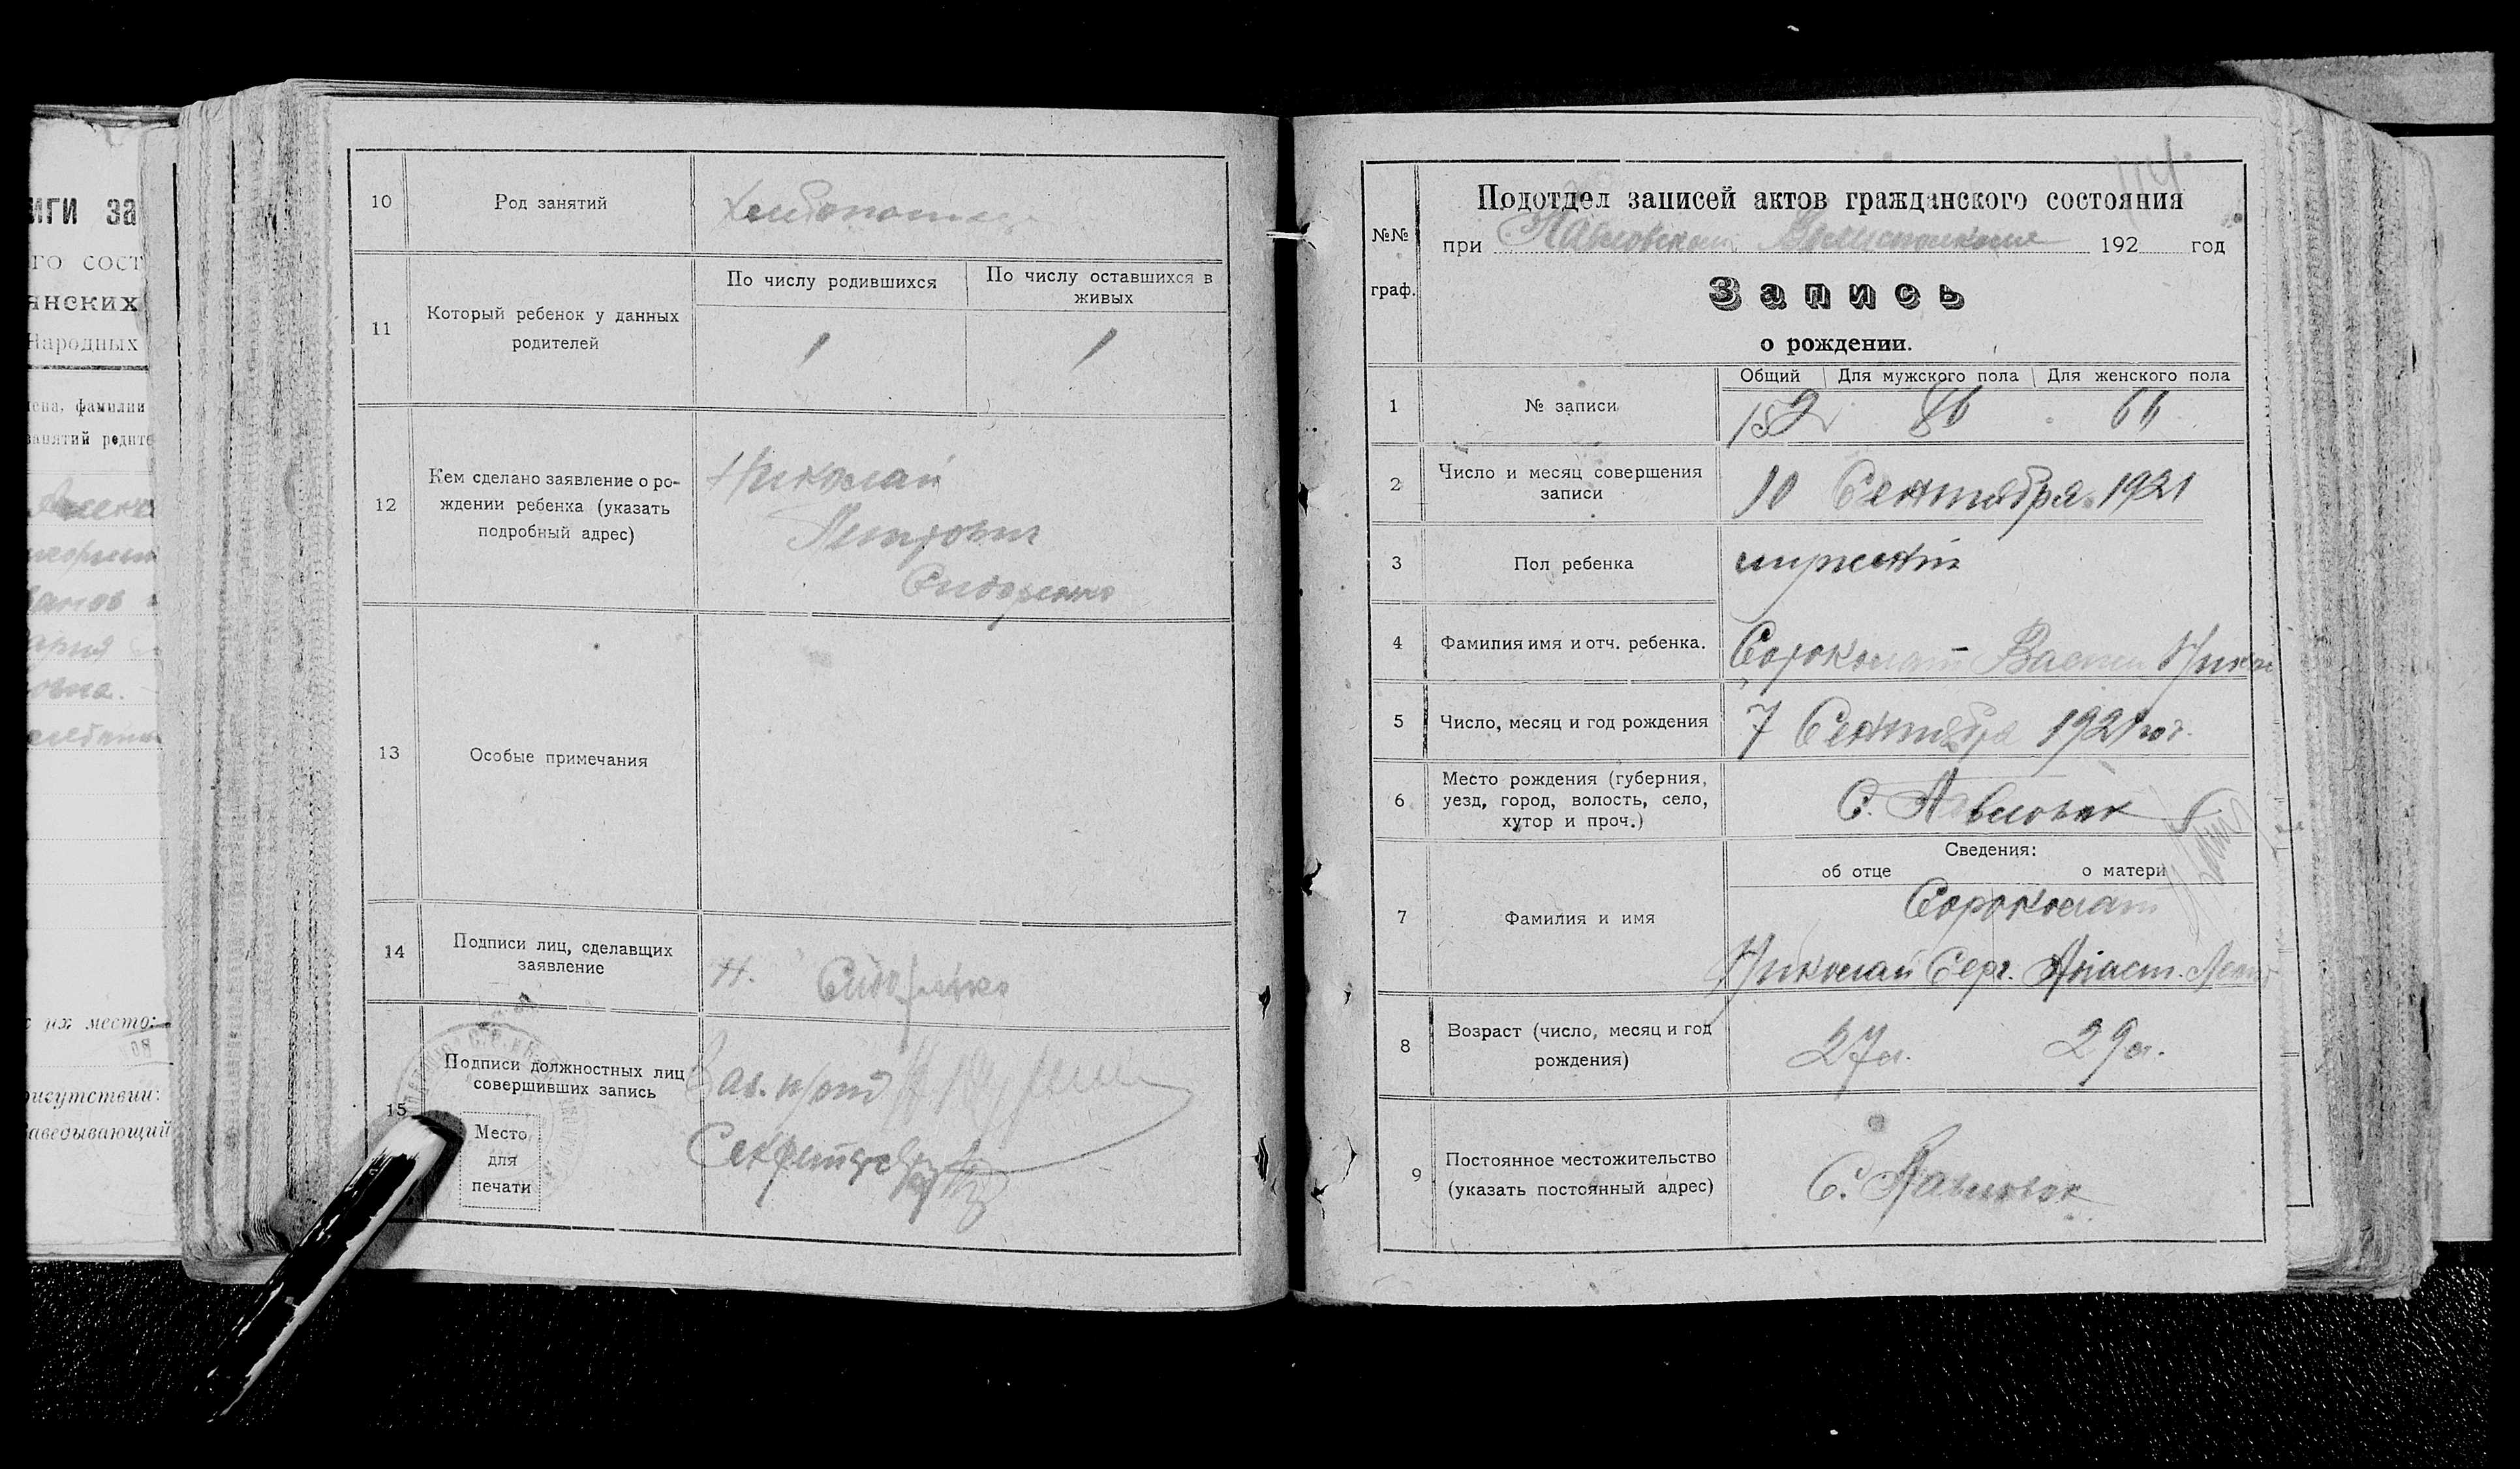 иги за
го сост
янских
Народных
ена, фамилии
занятий родите
с их место:
рисутствии:
аведывающий
10 Род занятий Хлебопашец
11 Который ребенок у данных родителей
По числу родившихся
По числу оставшихся в живых
1 1
12 Кем сделано заявление о ро-
ждении ребенка (указать
подробный адрес)
Николай
Петрович
Сидоренко
13 Особые примечания
14 Подписи лиц, сделавших
заявление
Н. Сидоренко
15 Подписи должностных лиц
совершивших запись
Зав. п/отд
Секретарь
Место
для
печати
№№
граф.
Подотдел записей актов гражданского состояния
при Павловском Волисполкоме 192 год
Запись
о рождении.
Общий Для мужского пола Для женского пола
1 № записи 152 86 66
2 Число и месяц совершения
записи
10 Сентября 1921
3 Пол ребенка мужской
4 Фамилия имя и отч. ребенка. Сороколат Васил Никол
5 Число, месяц и год рождения 7 Сентября 1921 год.
6 Место рождения (губерния,
уезд, город, волость, село,
хутор и проч.)
С. Павловск
Сведения:
об отце о матери
7 Фамилия и имя
Сороколат
Николай Серг. Анаст.
8 Возраст (число, месяц и год
рождения)
27 л. 29 л.
9 Постоянное местожительство
(указать постоянный адрес)
С. Павловск